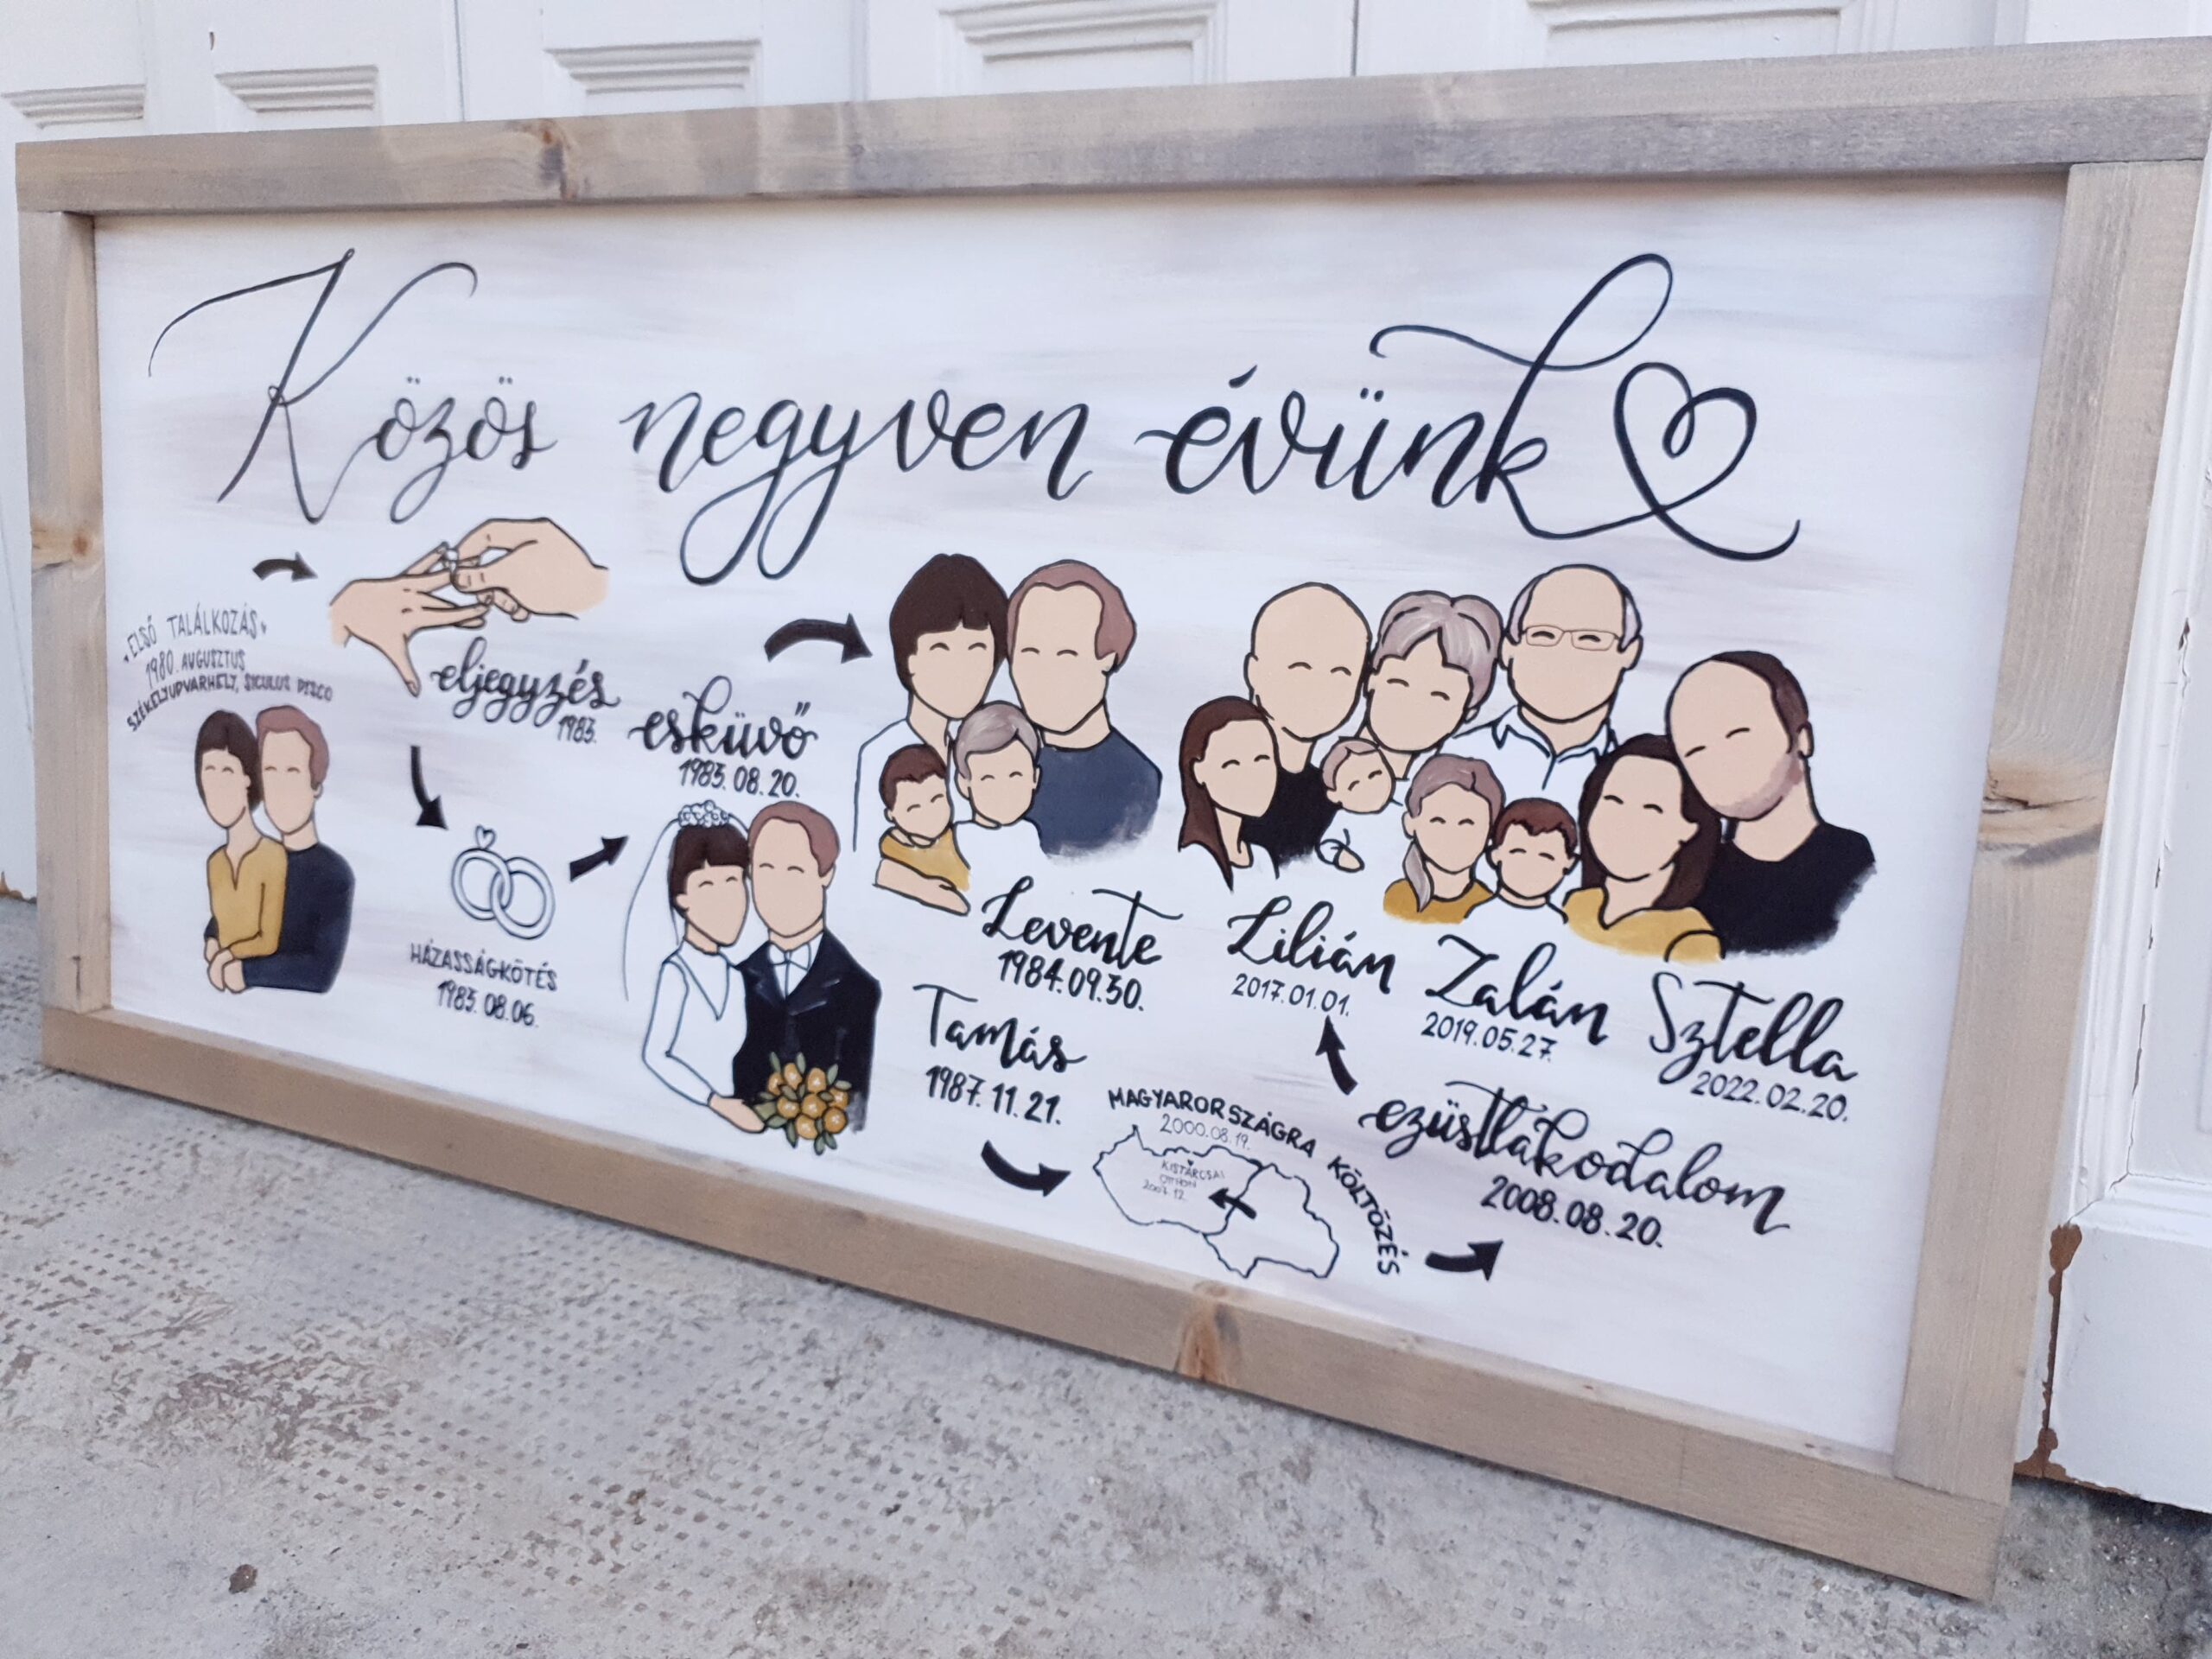 Közös negyven évünk
ELSŐ TALÁLKOZÁS
1980. AUGUSZTUS
SZÉKELYUDVARHELY, SICULUS DISCO
eljegyzés
1983.
HÁZASSÁGKÖTÉS
1983.08.06.
esküvő
1983.08.20.
Levente
1984.09.30.
Tamás
1987.11.21.
MAGYARORSZÁGRA KÖLTÖZÉS
2000.08.19.
KISTARCSAI
OTTHON
2007.12.
ezüstlakodalom
2008.08.20.
Lilián
2017.01.01.
Zalán
2019.05.27.
Sztella
2022.02.20.